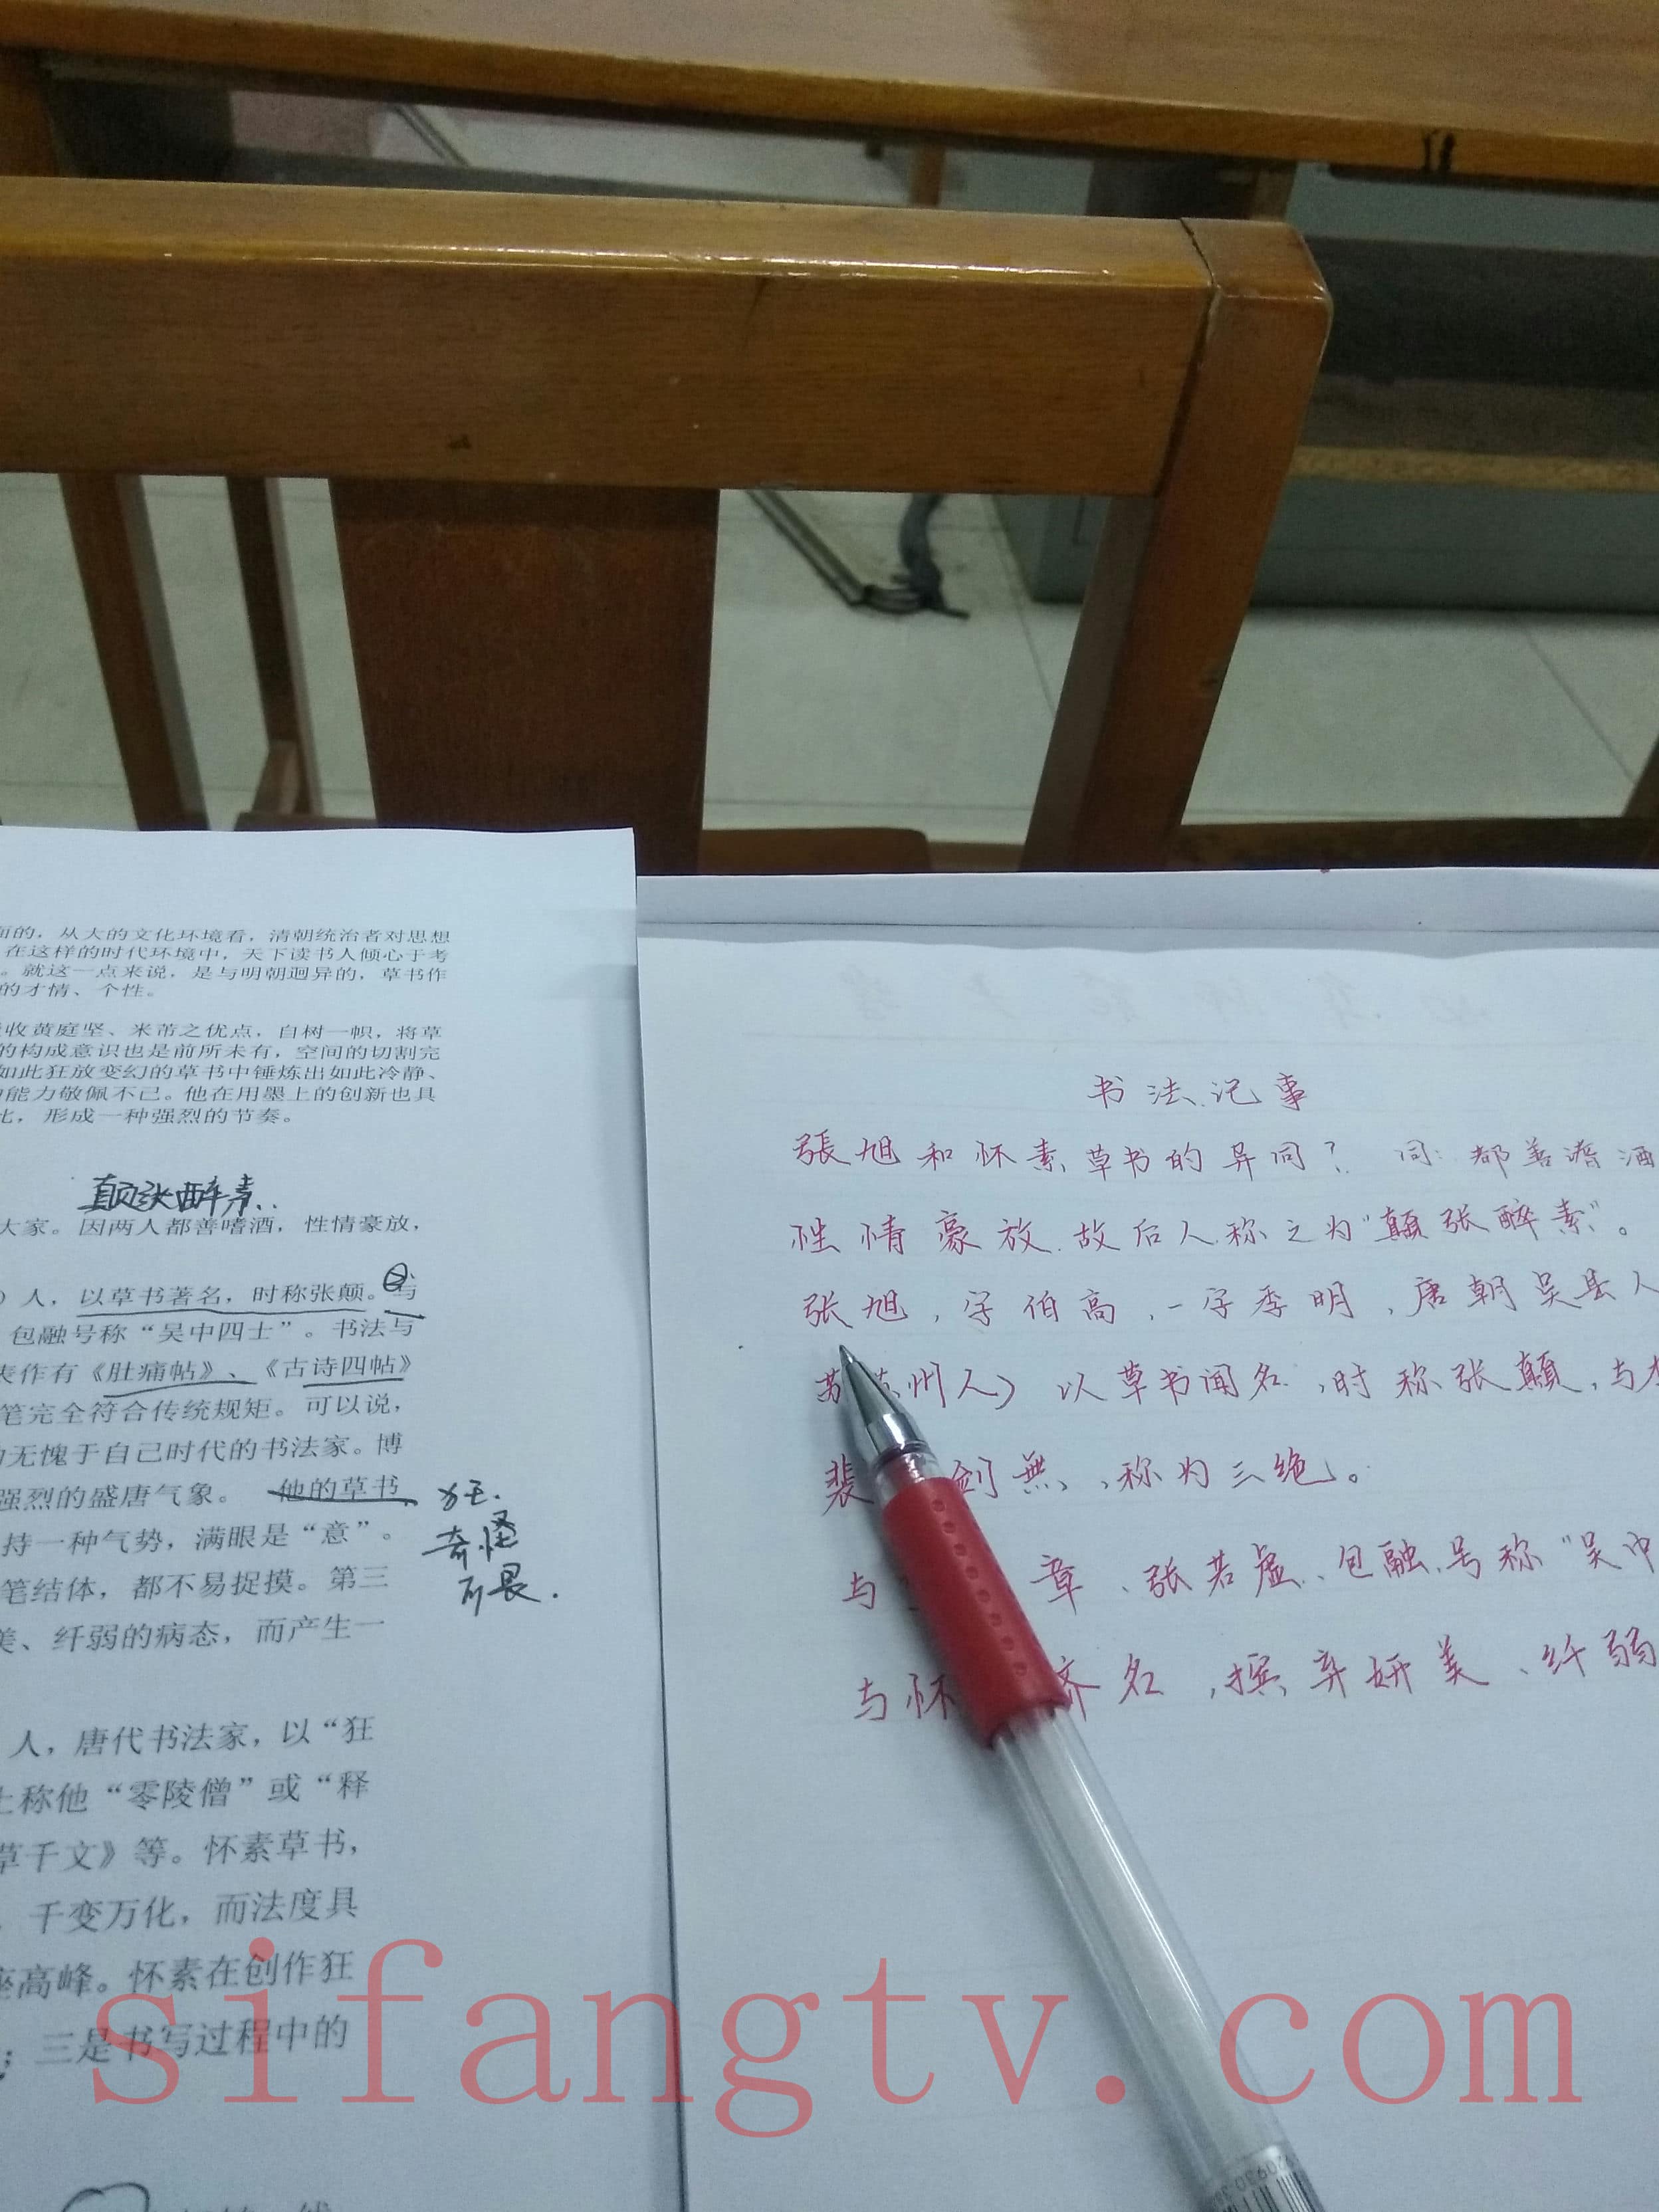 面的。从大的文化环境看，清朝统治者对思想
在这样的时代环境中，天下读书人倾心于考
。就这一点来说，是与明朝迥异的，草书作
的才情、个性。
收黄庭坚、米芾之优点，自树一帜，将草
的构成意识也是前所未有，空间的切割完
如此狂放变幻的草书中锤炼出如此冷静、
能力敬佩不已。他在用墨上的创新也具
比，形成一种强烈的节奏。
颠张醉素..
大家。因两人都善嗜酒，性情豪放，
）人，以草书著名，时称张颠。②与
包融号称“吴中四士”。书法与
表作有《肚痛帖》、《古诗四帖》
笔完全符合传统规矩。可以说，
无愧于自己时代的书法家。博
强烈的盛唐气象。 他的草书
持一种气势，满眼是“意”。
笔结体，都不易捉摸。第三
美、纤弱的病态，而产生一
奇怪
可畏.
人，唐代书法家，以“狂
上称他“零陵僧”或“释
草千文》等。怀素草书，
，千变万化，而法度具
座高峰。怀素在创作狂
；三是书写过程中的
书法记事
張旭和怀素草书的异同？ 同：都善嗜酒
性情豪放，故后人称之为“顛张醉素”。
张旭，字伯高，一字季明，唐朝吴县人
苏州人）以草书闻名，时称张顛，与李
裴 剑無，称为三绝。
与 章、张若虚、包融号称“吴中
与怀 齐名，摈弃妍美、纤弱
sifangtv.com